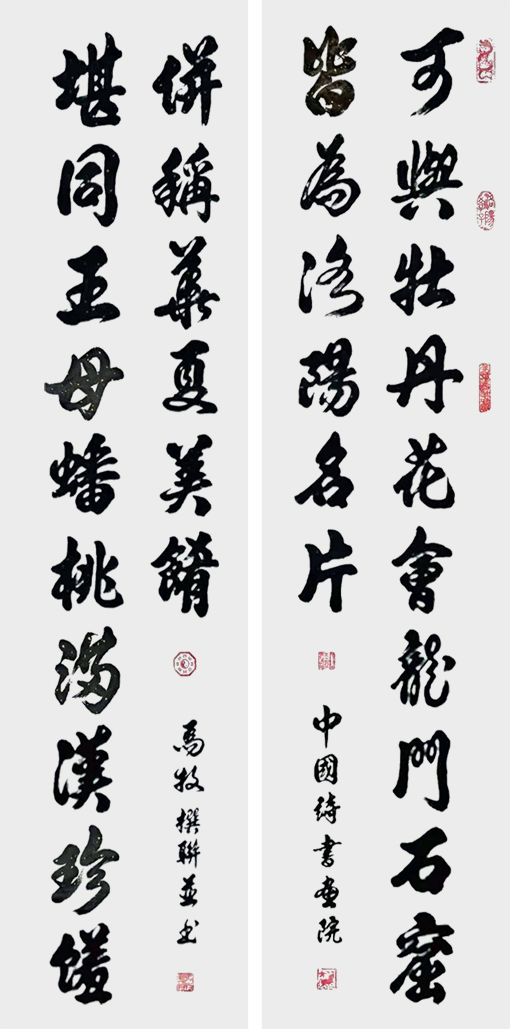 可與牡丹花會龍門石窟
皆為洛陽名片
中國詩書畫院
堪同王母蟠桃滿漢珍饈
併稱華夏美餚
馬牧撰聯並书